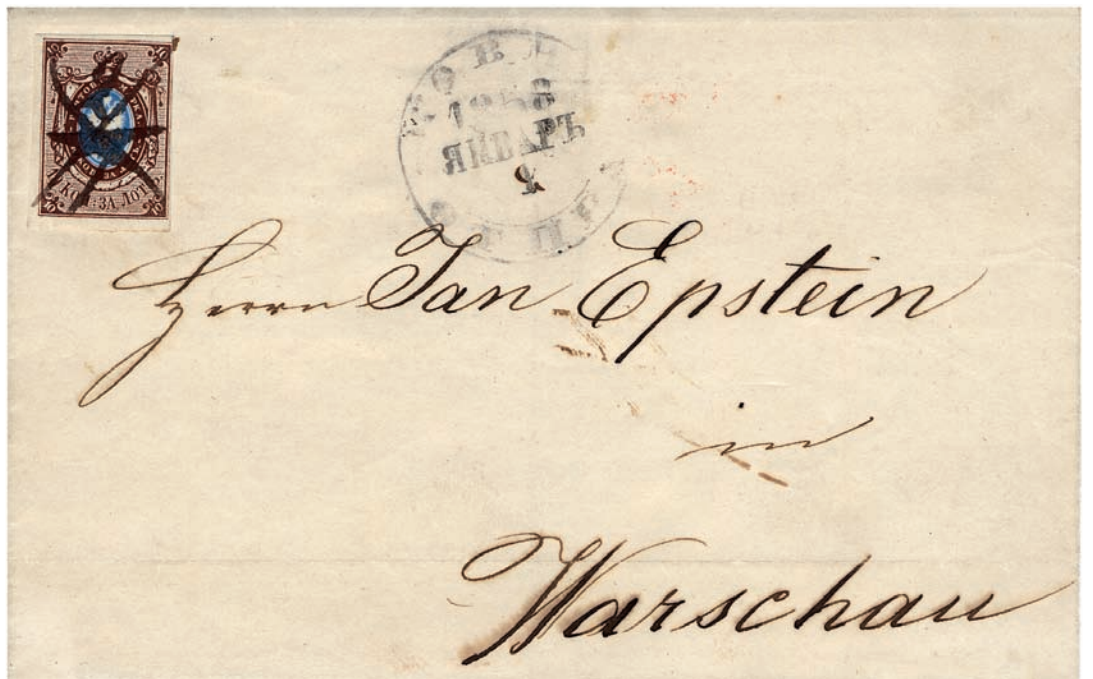 10 КОП: ЗА ЛОТЪ
1858
ЯНВАРЬ
Herrn Jan Epstein
in
Warschau